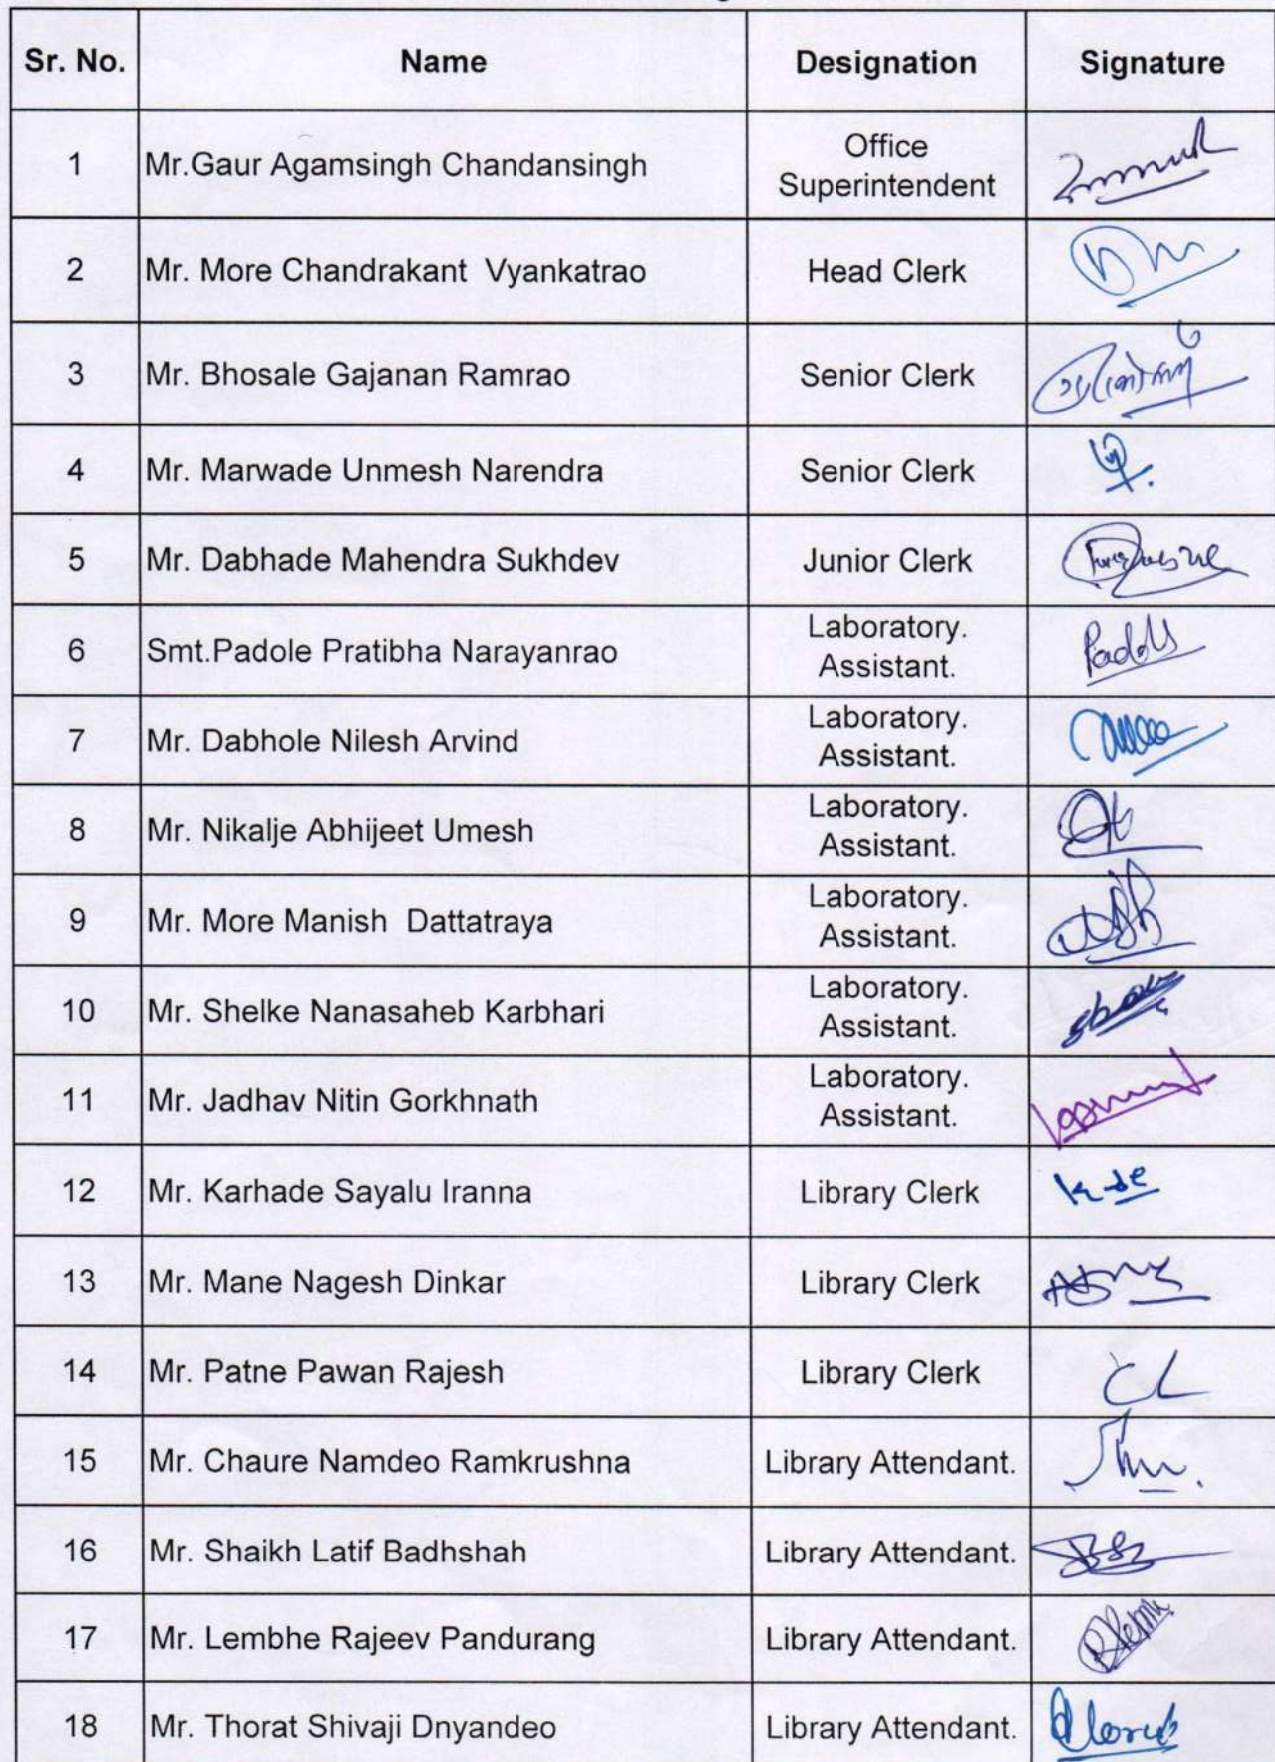 Sr. No. Name Designation Signature
1 Mr.Gaur Agamsingh Chandansingh Office
Superintendent
2 Mr. More Chandrakant Vyankatrao Head Clerk
3 Mr. Bhosale Gajanan Ramrao Senior Clerk
4 Mr. Marwade Unmesh Narendra Senior Clerk
5 Mr. Dabhade Mahendra Sukhdev Junior Clerk
6 Smt.Padole Pratibha Narayanrao Laboratory.
Assistant.
7 Mr. Dabhole Nilesh Arvind Laboratory.
Assistant.
8 Mr. Nikalje Abhijeet Umesh Laboratory.
Assistant.
9 Mr. More Manish Dattatraya Laboratory.
Assistant.
10 Mr. Shelke Nanasaheb Karbhari Laboratory.
Assistant.
11 Mr. Jadhav Nitin Gorkhnath Laboratory.
Assistant.
12 Mr. Karhade Sayalu Iranna Library Clerk
13 Mr. Mane Nagesh Dinkar Library Clerk
14 Mr. Patne Pawan Rajesh Library Clerk
15 Mr. Chaure Namdeo Ramkrushna Library Attendant.
16 Mr. Shaikh Latif Badhshah Library Attendant.
17 Mr. Lembhe Rajeev Pandurang Library Attendant.
18 Mr. Thorat Shivaji Dnyandeo Library Attendant.